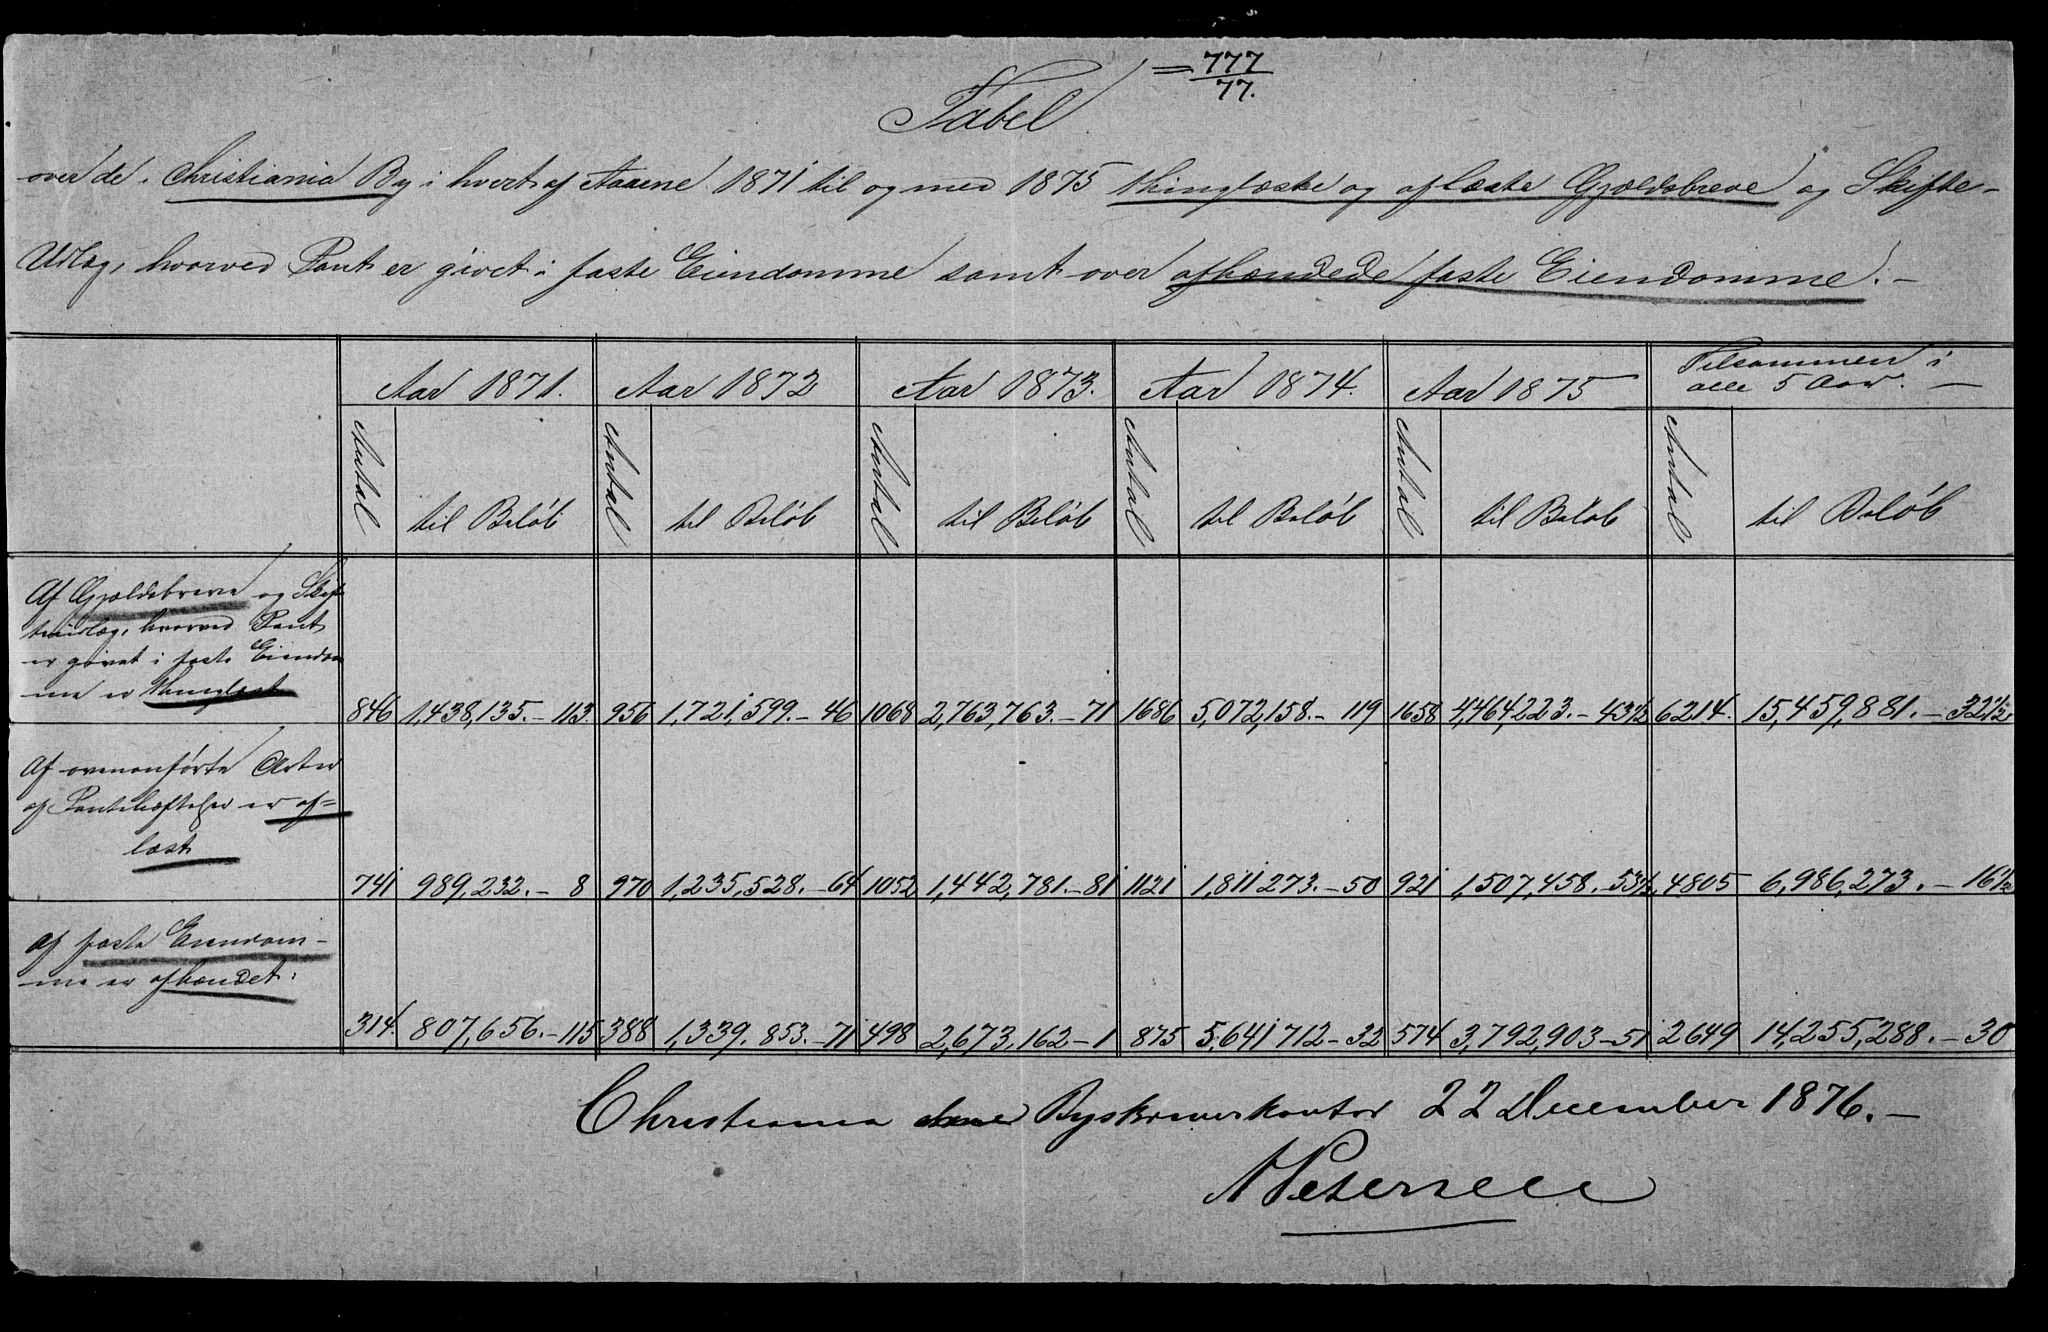 777
77.
Tabel
over de i Christiania By i hvert af Aarene 1871 til og med 1875 thinglæste og aflæste Gjældsbreve og Skifte-
Udlæg, hvorved Pant er givet i faste Eiendomme samt over afhændede faste Eiendomme. -
Aar 1871. Aar 1872 Aar 1873. Aar 1874. Aar 1875 Tilsammen i
alle 5 Aar. -
Antal til Beløb Antal til Beløb Antal til Beløb Antal til Beløb Antal til Beløb Antal til Beløb
Af Gjældsbreve og Skif-
teudlæg, hvorved Pant
er givet i faste Eiendom
me er thinglæst 846 1,438,135. - 113. 956 1,721,599. - 46 1068 2,763,763. - 71 1686 5,072,158. - 119 1658 4,464,223. - 43 1/2 6214. 15,459,881. - 32 1/2
Af ovenanførte Arter
af Pantehæftelser er af=
læst
741 989,232. - 8 970 1,235,528. - 64 1052 1,442,781. - 81 1121 1,811,273. - 50 921 1,507,458. - 53 1/2 4805 6,986,273. - 16 1/2
Af faste Eiendom-
me er afhændet.
314. 807,656. - 115 388 1,339,853. - 71 498 2,673,162 - 1 875 5,641,712 - 32 574 3,792,903 - 51 2649 14,255,288. - 30
Christiania Byskriverkontor 22 December 1876. -
Petersen